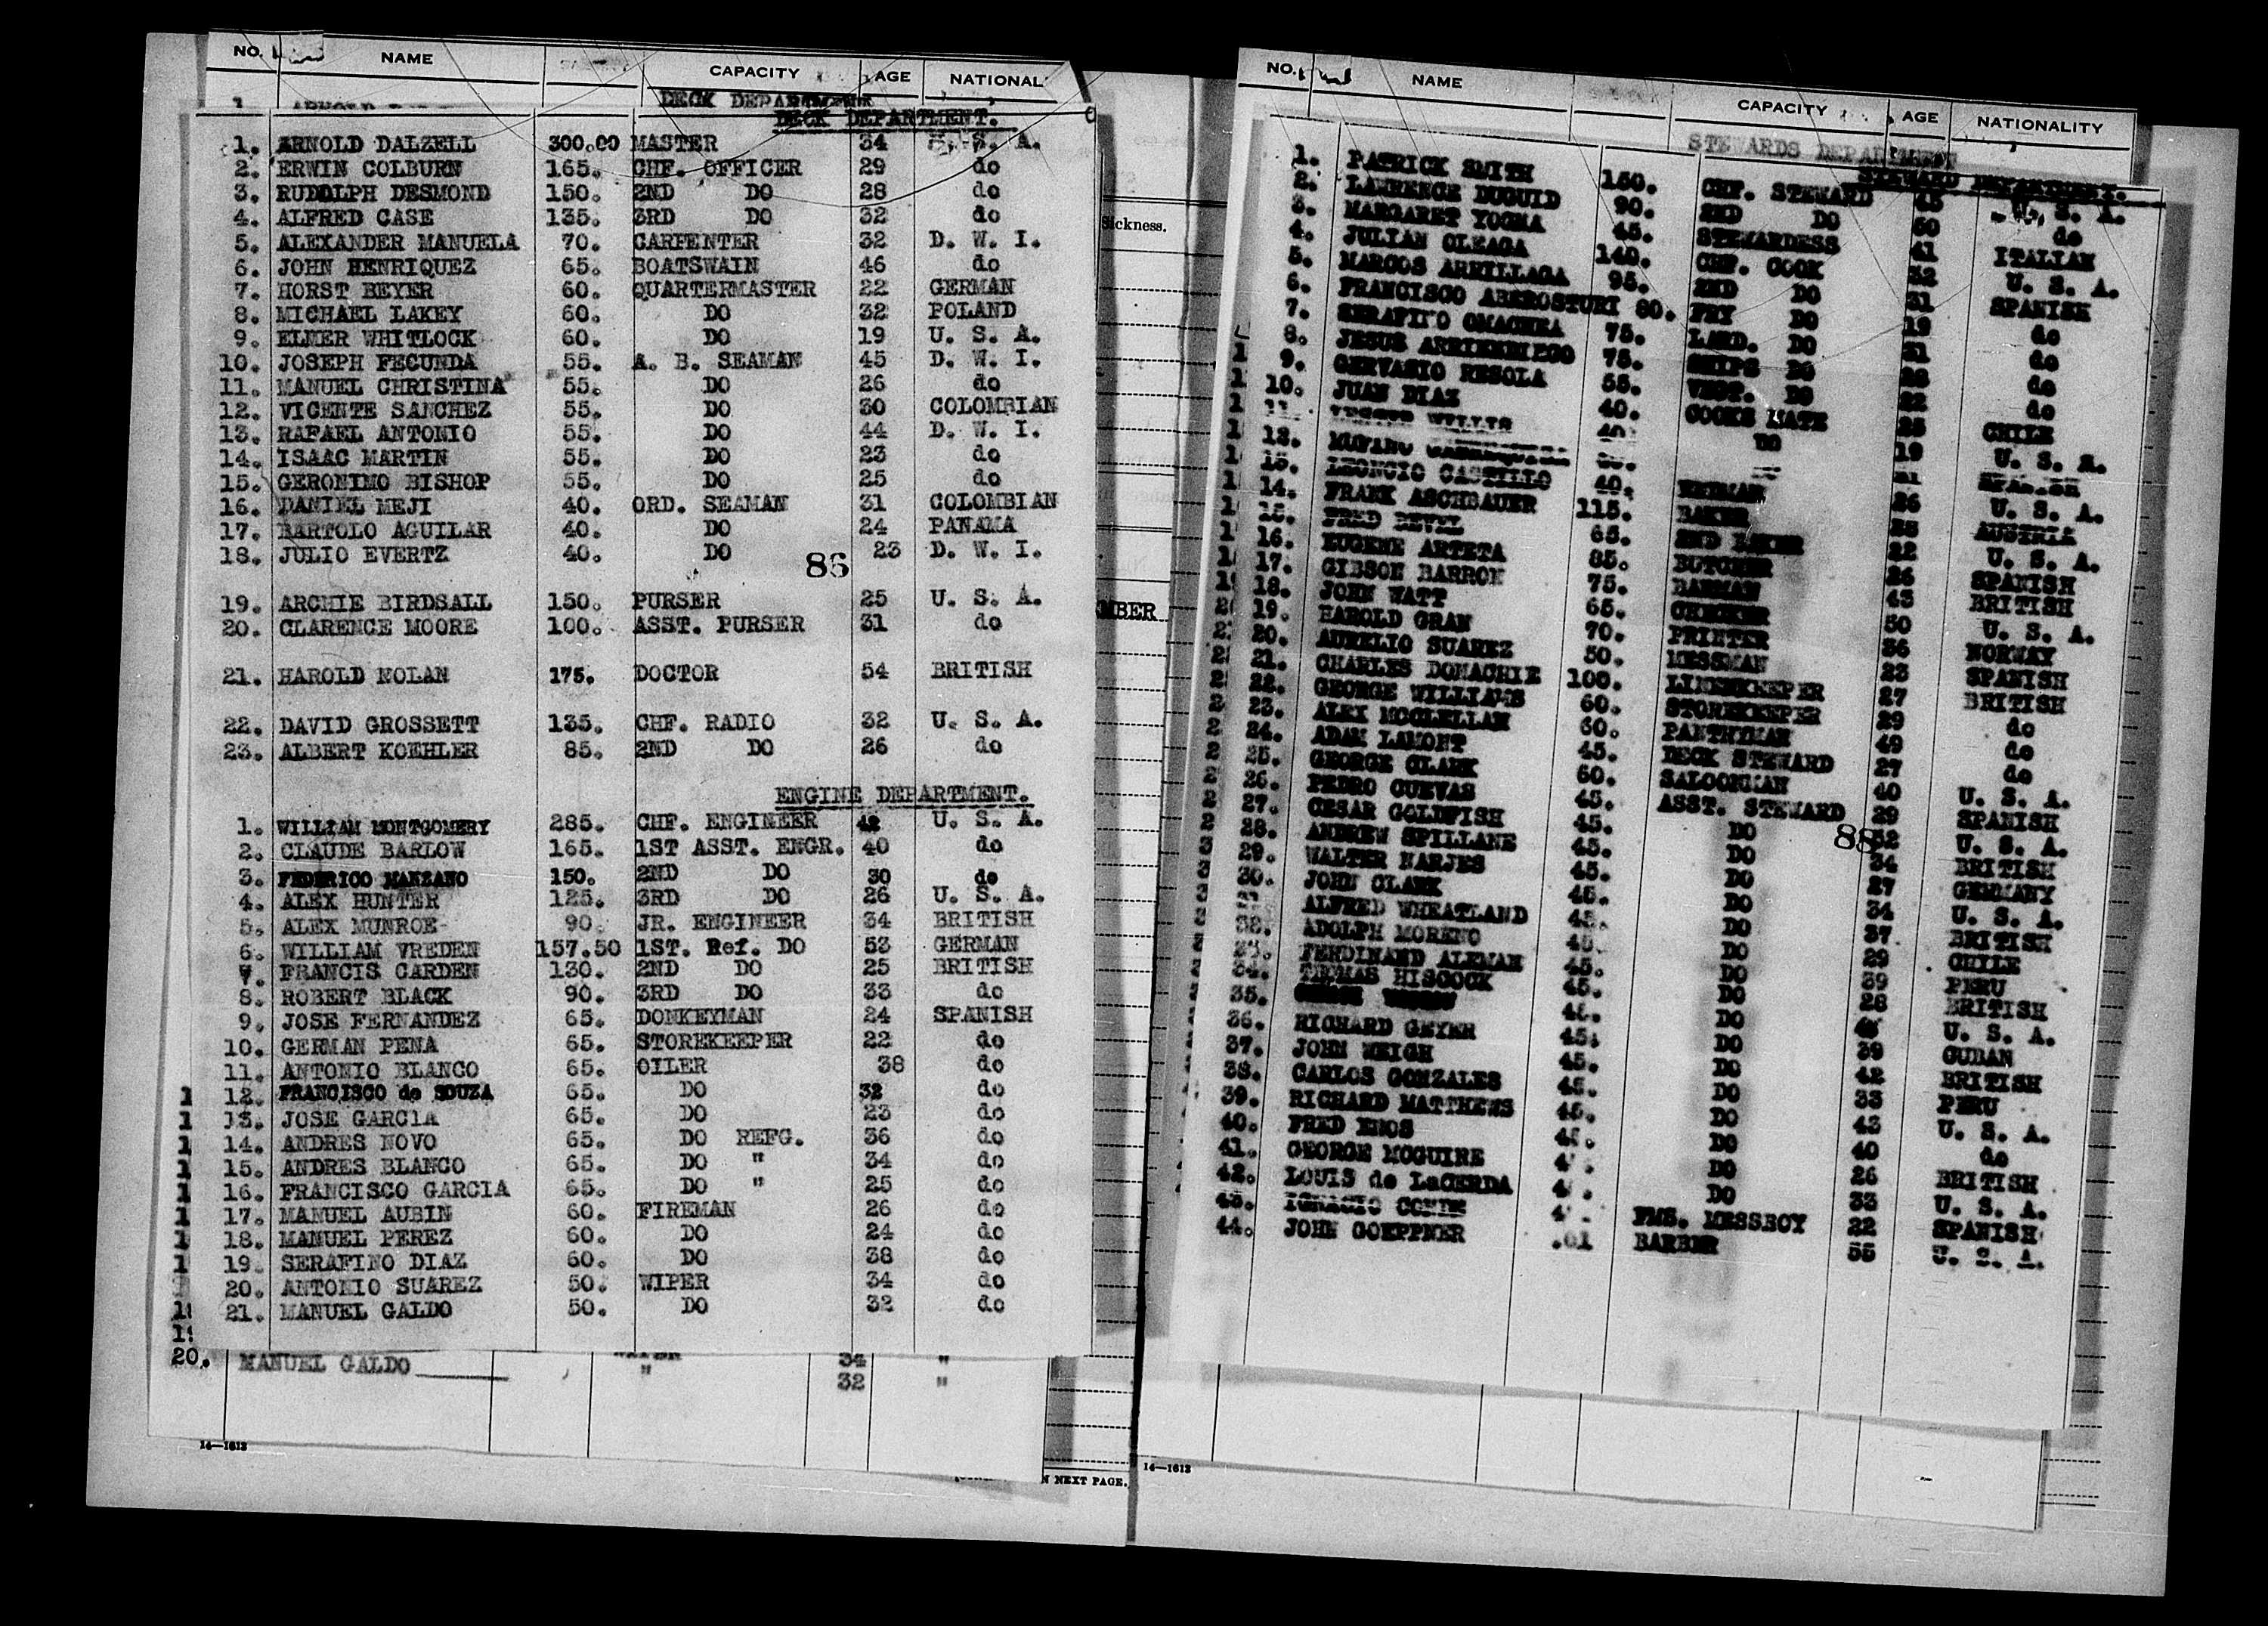 NO. NAME CAPACITY AGE NATIONAL
DECK DEPARTMENT
DECK DEPARTMENT.
1. ARNOLD DALZELL 300.00 MASTER 34 U. S. A.
2. ERWIN COLBURN 165. CHF. OFFICER 29 do
3. RUDOLPH DESMOND 150. 2ND DO 28 do
4. ALFRED CASE 135. 3RD DO 32 do
5. ALEXANDER MANUELA 70. CARPENTER 32 D. W. I.
6. JOHN HENRIQUEZ 65. BOATSWAIN 46 do
7. HORST BEYER 60. QUARTERMASTER 22 GERMAN
8. MICHAEL LAKEY 60. DO 32 POLAND
9. ELMER WHITLOCK 60. DO 19 U. S. A.
10. JOSEPH FECUNDA 55. A. B. SEAMAN 45 D. W. I.
11. MANUEL CHRISTINA 55. DO 26 do
12. VICENTE SANCHEZ 55. DO 30 COLOMBIAN
13. RAFAEL ANTONIO 55. DO 44 D. W. I.
14. ISAAC MARTIN 55. DO 23 do
15. GERONIMO BISHOP 55. DO 25 do
16. DANIEL MEJI 40. ORD. SEAMAN 31 COLOMBIAN
17. BARTOLO AGUILAR 40. DO 24 PANAMA
18. JULIO EVERTZ 40. DO 23 D. W. I.
86
19. ARCHIE BIRDSALL 150. PURSER 25 U. S. A.
20. CLARENCE MOORE 100. ASST. PURSER 31 do
21. HAROLD NOLAN 175. DOCTOR 54 BRITISH
22. DAVID GROSSETT 135. CHF. RADIO 32 U. S. A.
23. ALBERT KOEHLER 85. 2ND DO 26 do
ENGINE DEPARTMENT.
1. WILLIAM MONTGOMERY 285. CHF. ENGINEER 42 U. S. A.
2. CLAUDE BARLOW 165. 1ST ASST. ENGR. 40 do
3. FEDERICO MANZANO 150. 2ND DO 30 do
4. ALEX HUNTER 125. 3RD DO 26 U. S. A.
5. ALEX MUNROE 90. JR. ENGINEER 34 BRITISH
6. WILLIAM VREDEN 157.50 1ST. Ref. DO 53 GERMAN
7. FRANCIS CARDEN 130. 2ND DO 25 BRITISH
8. ROBERT BLACK 90. 3RD DO 33 do
9. JOSE FERNANDEZ 65. DONKEYMAN 24 SPANISH
10. GERMAN PENA 65. STOREKEEPER 22 do
11. ANTONIO BLANCO 65. OILER 38 do
12. FRANCISCO de SOUZA 65. DO 32 do
13. JOSE GARCIA 65. DO 23 do
14. ANDRES NOVO 65. DO REFG. 36 do
15. ANDRES BLANCO 65. DO " 34 do
16. FRANCISCO GARCIA 65. DO " 25 do
17. MANUEL AUBIN 60. FIREMAN 26 do
18. MANUEL PEREZ 60. DO 24 do
19. SERAFINO DIAZ 60. DO 38 do
20. ANTONIO SUAREZ 50. WIPER 34 do
21. MANUEL GALDO 50. DO 32 do
34 "
20. MANUEL GALDO " 32 "
14—1613
N NEXT PAGE.
Sickness.
MBER
NO. NAME CAPACITY AGE NATIONALITY
STEWARDS DEPARTMENT
STEWARD DEPARTMENT.
1. PATRICK SMITH 150. CHF. STEWARD 45 U. S. A.
2. LAWRENCE DUGUID 90. 2ND DO 50 do
3. MARGARET YOGMA 45. STEWARDESS 41 ITALIAN
4. JULIAN OLEAGA 140. CHF. COOK 32 U. S. A.
5. MARCOS ARRILLAGA 95. 2ND DO 31 SPANISH
6. FRANCISCO ABEROSTURI 80. FRY DO 19 do
7. SERAFINO OMACHEA 75. LARD. DO 31 do
8. JESUS 75. SHIPS DO 28 do
9. GERVASIO RESOLA 55. VEGT. DO 22 do
10. JUAN DIAZ 40. COOKS MATE 25 CHILE
11. WILLIS 40. DO 19 U. S. A.
12. 21 SPANISH
13. LEONCIO CASTILLO 40. 26 U. S. A.
14. FRANK ASCHBAUER 115. BAKER 28 AUSTRIA
15. FRED 65. 2ND BAKER 22 U. S. A.
16. EUGENE ARTETA 85. BUTCHER 26 SPANISH
17. GIBSON BARRON 75. BARMAN 43 BRITISH
18. JOHN WATT 65. CHECKER 50 U. S. A.
19. HAROLD GRAN 70. PRINTER 36 NORWAY
20. AURELIO SUAREZ 50. MESSMAN 23 SPANISH
21. CHARLES DONACHIE 100. LINENKEEPER 27 BRITISH
22. GEORGE WILLIAMS 60. STOREKEEPER 29 do
23. ALEX MCCLELLAN 60. PANTRYMAN 49 do
24. ADAM LAMONT 45. DECK STEWARD 27 do
25. GEORGE CLARK 60. SALOONMAN 40 U. S. A.
26. PEDRO CUEVAS 45. ASST. STEWARD 29 SPANISH
27. CESAR GOLDFISH 45. DO 32 U. S. A.
88
28. ANDREW SPILLANE 45. DO 34 BRITISH
29. WALTER NARJES 45. DO 27 GERMANY
30. JOHN CLARK 45. DO 34 U. S. A.
31. ALFRED WHEATLAND 45. DO 37 BRITISH
32. ADOLPH MORENO 45. DO 29 CHILE
33. FERDINAND ALEMAN 45. DO 39 PERU
34. THOMAS HISCOCK 45. DO 28 BRITISH
35. 45. DO U. S. A.
36. RICHARD GEYER 45. DO 39 CUBAN
37. JOHN WEIGH 45. DO 42 BRITISH
38. CARLOS GONZALES 45. DO 33 PERU
39. RICHARD MATTHEWS 45. DO 43 U. S. A.
40. FRED ENOS 45. DO 40 do
41. GEORGE MCGUIRE DO 26 BRITISH
42. LOUIS de LaCERDA DO 33 U. S. A.
43. IGNACIO FMS. MESSBOY 22 SPANISH
44. JOHN GOEPPNER .01 BARBER 55 U. S. A.
14—1613